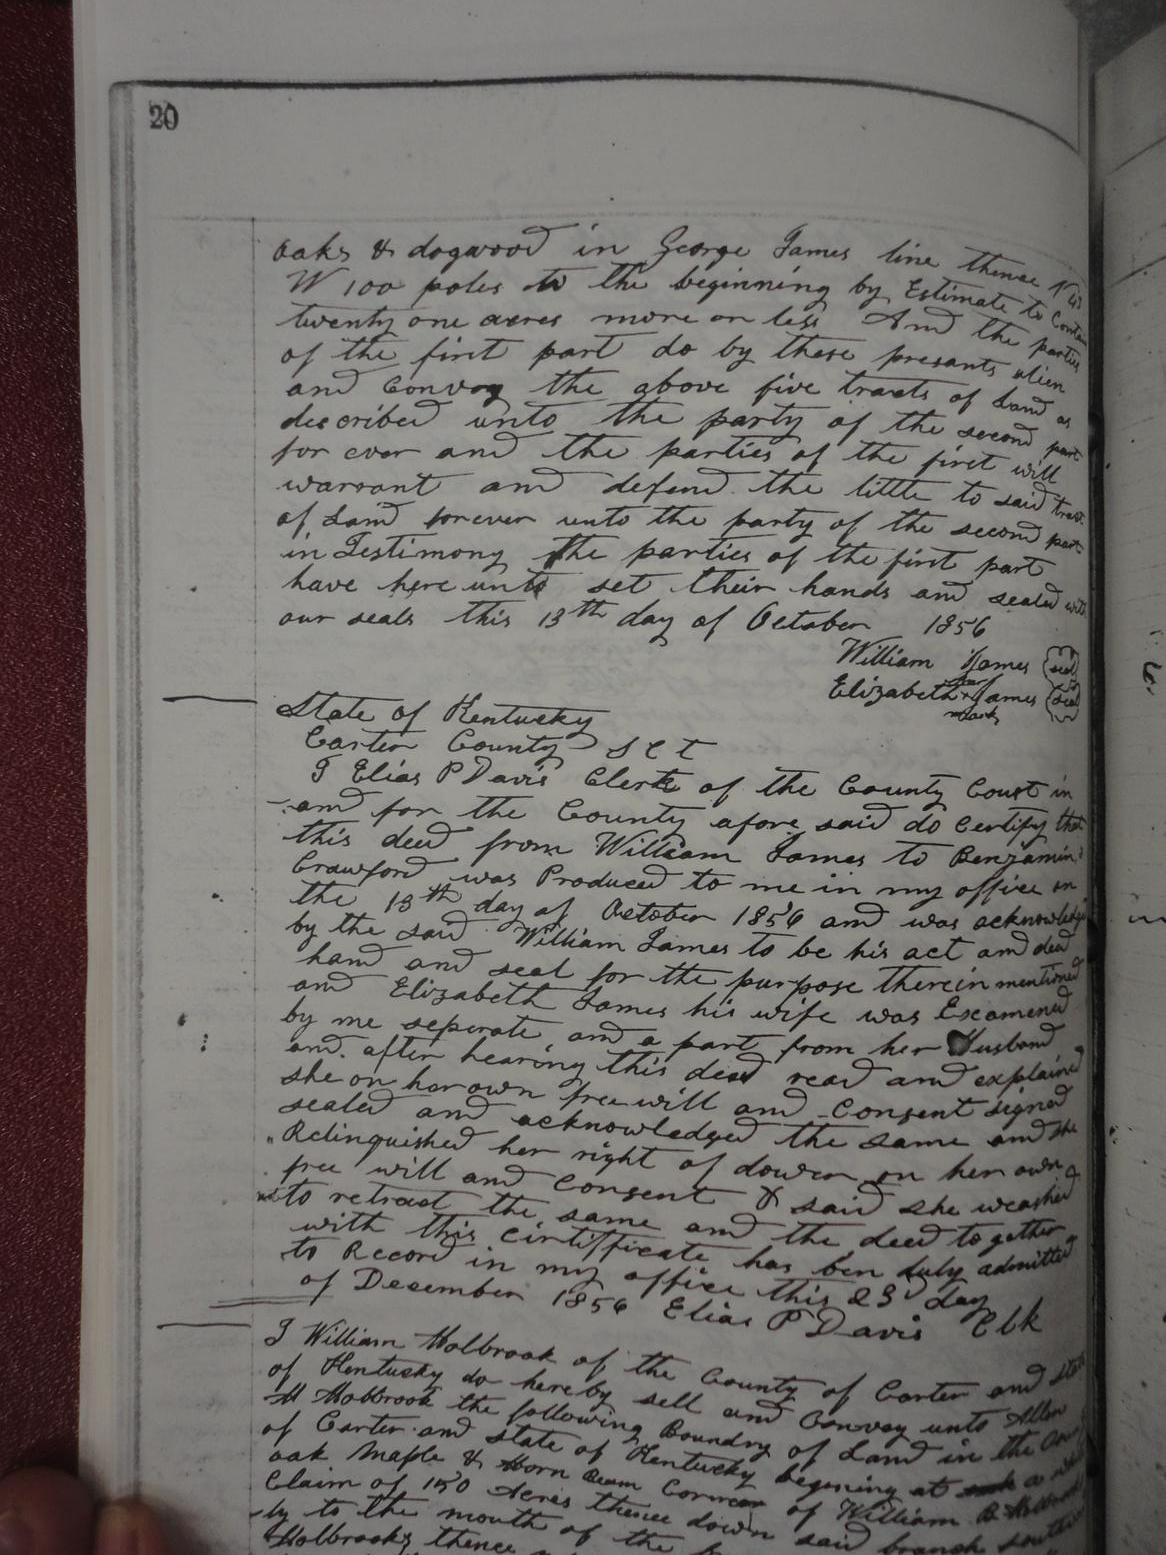 20
oaks & dogwood in George James line thence N 43
W 100 poles to the beginning by Estimate to Contain
twenty one acres more or less And the parties
of the first part do by these presants alien
and Convay the above five tracts of Land as
described unto the party of the second part
for ever and the parties of the first will
warrant and defend the little to said tract
of Land forever unto the party of the second part
in Testimony the parties of the first part
have here unto set their hands and sealed with
our seals this 13th day of October 1856
William James seal
Elizabeth her x mark James seal
State of Kentucky
Carter County SCT
I Elias P Davis Clerk of the County Court in
and for the County afore said do Certify that
this deed from William James to Benjamin
Crawford was Produced to me in my office on
the 13th day of October 1856 and was acknowledge
by the said William James to be his act and deed
hand and seal for the purpose therein mentioned
and Elizabeth James his wife was Examened
by me seperate and a part from her Husband
and after hearing this deed read and explained
she on her own free will and Consent signed
sealed and acknowledged the same and she
Relinquished her right of dower on her own
free will and Consent & said she weashed
not to retract the same and the deed together
with this Certifficate has ben duly admitted
to Record in my office this 23 day
of December 1856 Elias P Davis Clk
I William Holbrook of the County of Carter and State
of Kentucky do hereby sell and Convay unto Allen
H Holbrook the following Boundry of Land in the County
of Carter and State of Kentucky begening at a white
oak Maple & Horn Beam Corner of William B Holbrook
Claim of 150 Acres thence down said branch
ly to the mouth of the
Holbrooks thence